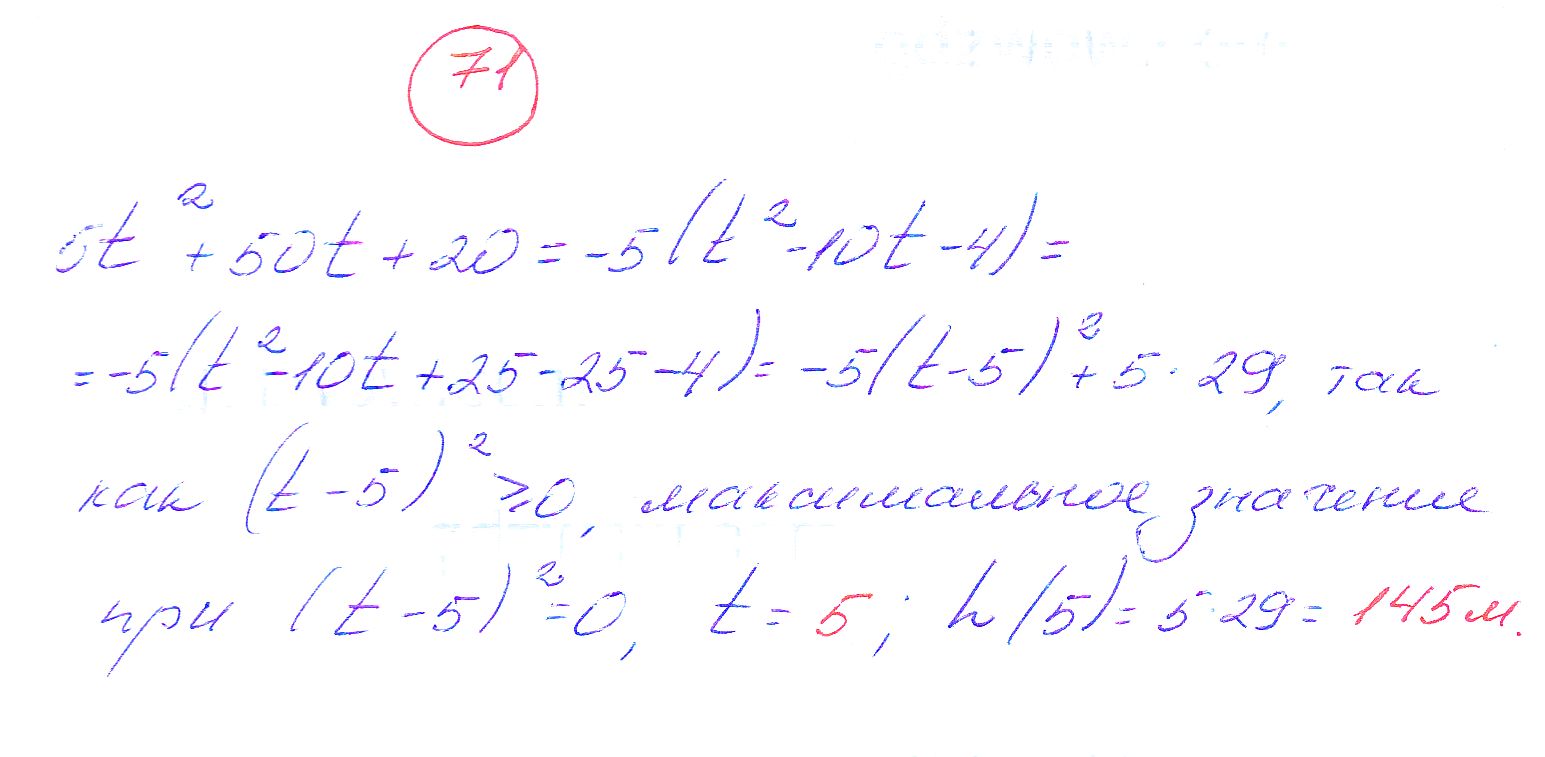 71
5t² + 50t + 20 = -5(t² - 10t - 4) =
= -5(t² - 10t + 25 - 25 - 4) = -5(t - 5)² + 5 · 29, так
как (t - 5)² ⩾ 0, максимальное значение
при (t - 5)² = 0, t = 5; h(5) = 5 · 29 = 145м.